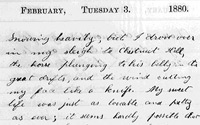 February, Tuesday 3. 1880.
Snowing heavily; but I drove over
in my sleigh to Chestnut Hill,
the horse plunging to his belly in the
great drifts, and the wind cutting
my face like a knife. My sweet
life was just as lovable and pretty
as ever; it seems hardly possible that